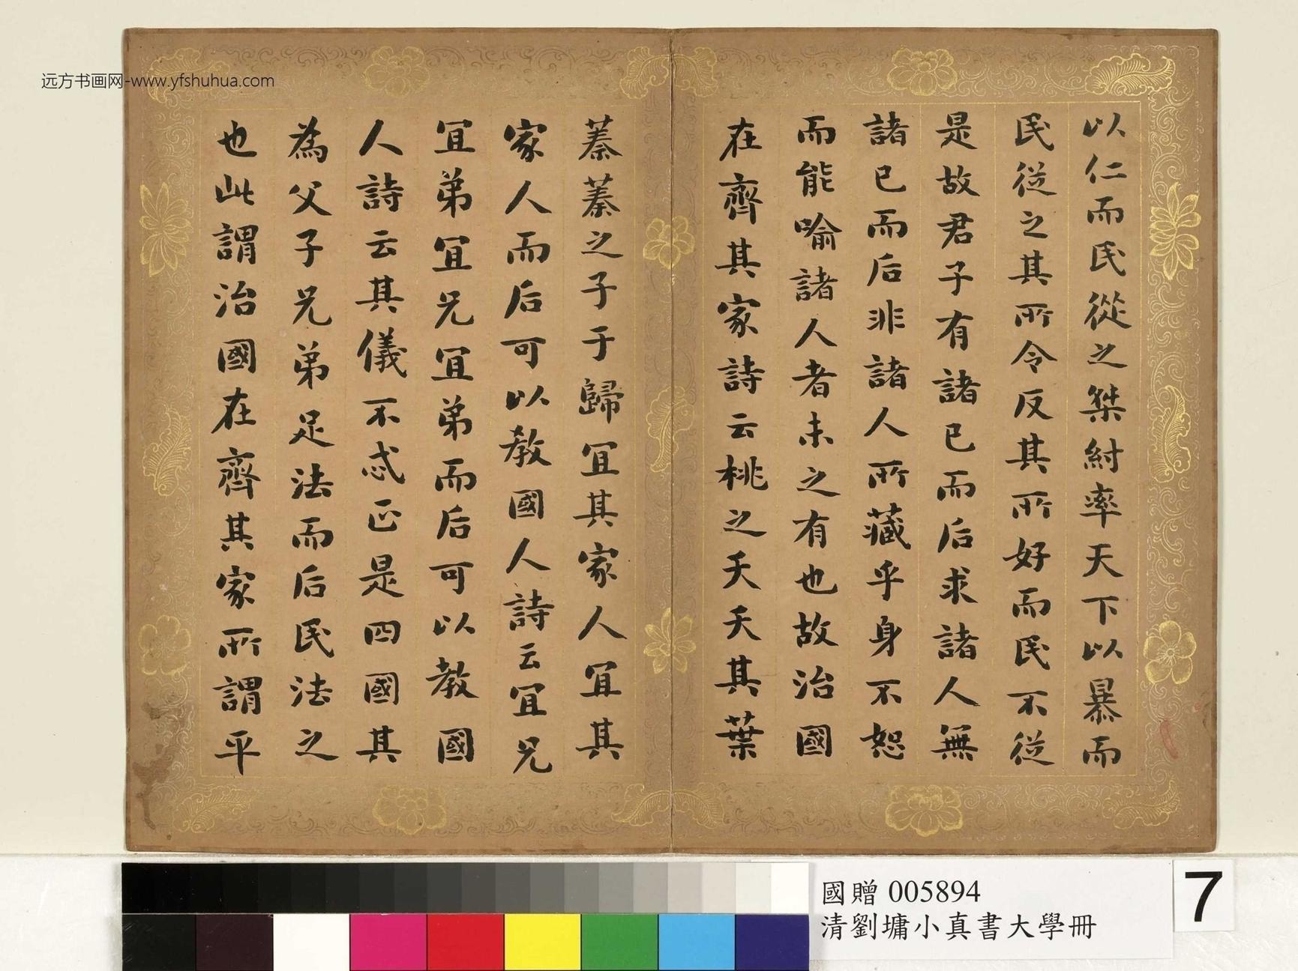 远方书画网-www.yfshuhua.com
以仁而民從之桀紂率天下以暴而
民從之其所令反其所好而民不從
是故君子有諸己而后求諸人無
諸已而后非諸人所藏乎身不恕
而能喻諸人者未之有也故治國
在齊其家詩云桃之夭夭其葉
蓁蓁之子于歸宜其家人宜其
家人而后可以教國人詩云宜兄
宜弟宜兄宜弟而后可以教國
人詩云其儀不忒正是四國其
為父子兄弟足法而后民法之
也此謂治國在齊其家所謂平
國贈 005894
清劉墉小真書大學冊
7